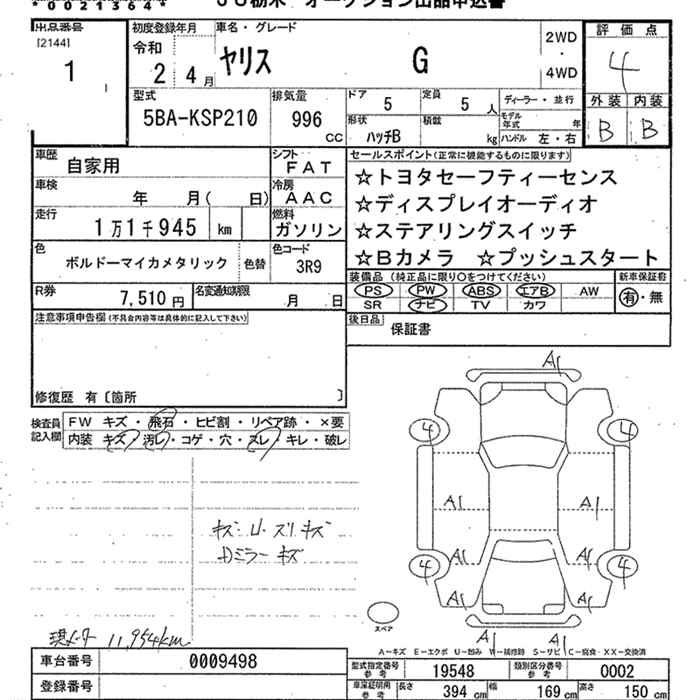 *00213648*
JU栃木 オークション出品申込書
出品番号
[2144]
1
初度登録年月
令和
2 4月
車名・グレード
ヤリス G
2WD
・
4WD
評価点
4
外装 内装
B B
型式
5BA-KSP210
排気量
996
CC
ドア
5
定員
5人
ディーラー・並行
形状
ハッチB
積載
kg
モデル年式 年
ハンドル 左・右
車歴
自家用
シフト
FAT
セールスポイント(正常に機能するものに限ります)
☆トヨタセーフティーセンス
☆ディスプレイオーディオ
☆ステアリングスイッチ
☆Bカメラ ☆プッシュスタート
車検
年 月( 日)
冷房
AAC
走行
1万1千945 km
燃料
ガソリン
色
ボルドーマイカメタリック
色替
色コード
3R9
装備品(純正品に限り○をつけてください)
PS PW ABS エアB AW
SR ナビ TV カワ
新車保証書
有・無
R券
7,510円
名変通知期限
月 日
後日品
保証書
注意事項申告欄(不具合内容等は具体的に記入して下さい)
修復歴 有〔箇所 〕
検査員
記入欄
FW キズ・飛石・ヒビ割・リペア跡・×要
内装 キズ・汚レ・コゲ・穴・スレ・キレ・破レ
キズU.スリキズ
ミラーキズ
現メーター 11,954km
A1
4 4
A1 A1
A1 A1
4 4
A1 A1
A1 A1
スペア
A-キズ E-エクボ U-凹み W-補修跡 S-サビ C-腐食・XX-交換済
車台番号
0009498
登録番号
型式指定番号
参考
19548
類別区分番号
参考
0002
車庫証明用
参考
長さ
394 cm
幅
169 cm
高さ
150 cm